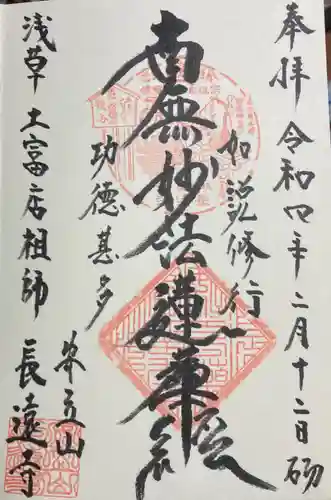 奉拝 令和四年二月十二日
如説修行
南無妙法蓮華経
功徳甚多
浅草 土富店祖師
安立山
長遠寺